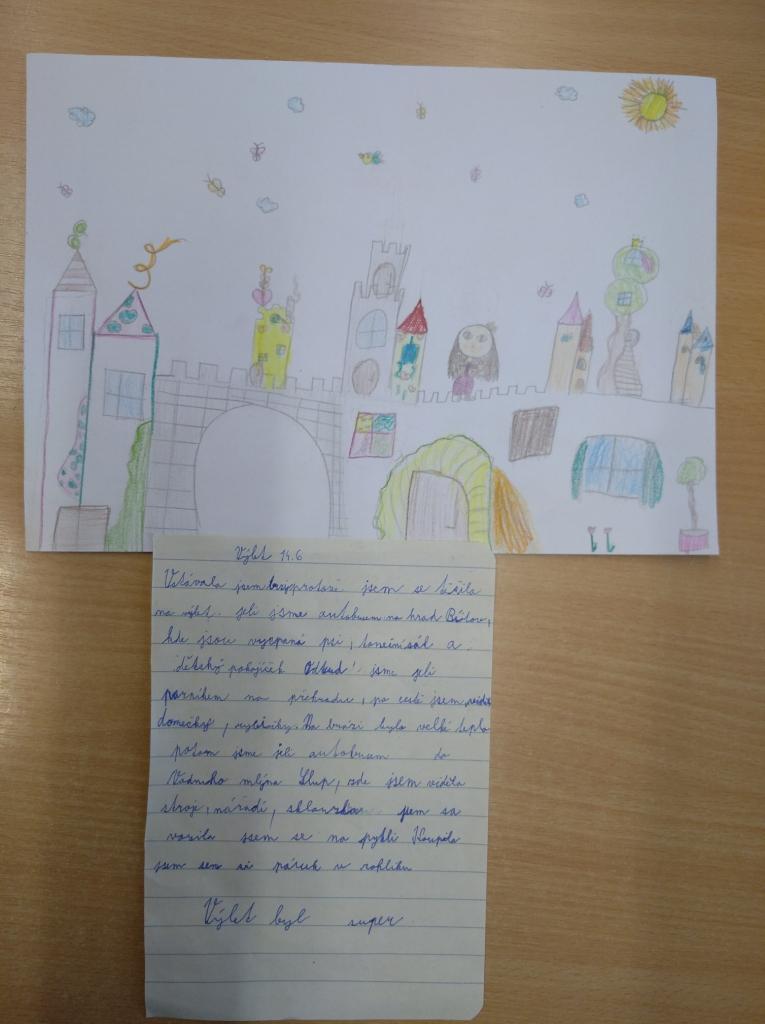 Výlet 14.6
Vstávala jsem brzy protože jsem se těšila
na výlet. jeli jsme autobusem na hrad Bítov,
kde jsou vycpaná psi, taneční sál a
dětský pokojíček Odkud jsme jeli
parníkem na přehradu, po cestě jsem viděla
domečky, rybičky. Na hrázi bylo velké teplo
potom jsme jeli autobusem do
Vodního mlýna Slup, zde jsem viděla
stroje, nářadí, jsem sa
vozila jsem se na pytli Koupila
jsem sem si párek v rohlíku
Výlet byl super